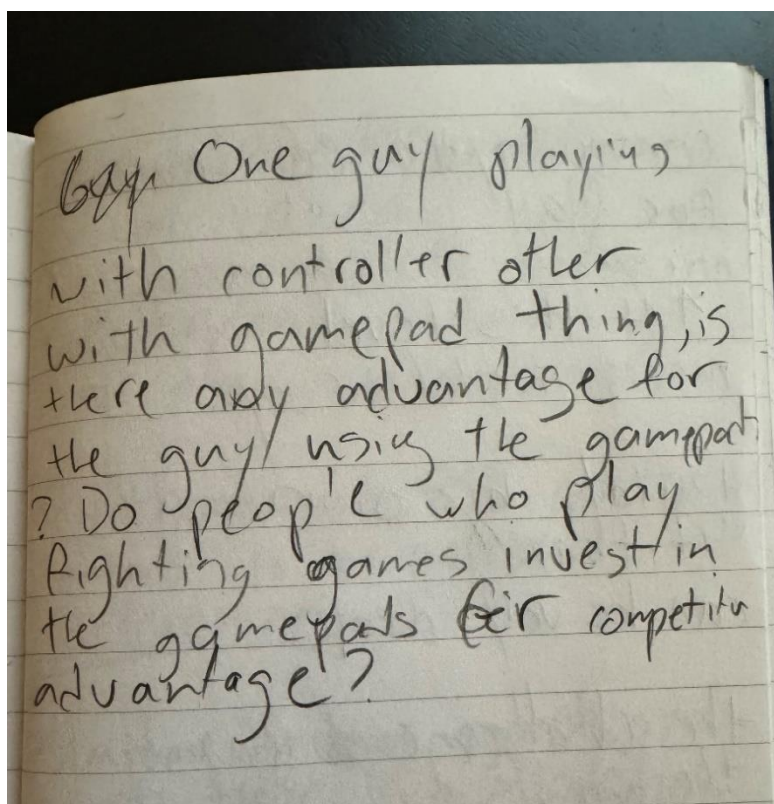 One guy playing
with controller other
with gamepad thing, is
there any advantage for
the guy using the gamepad
? Do people who play
fighting games invest in
the gamepads for competitiv
advantage?